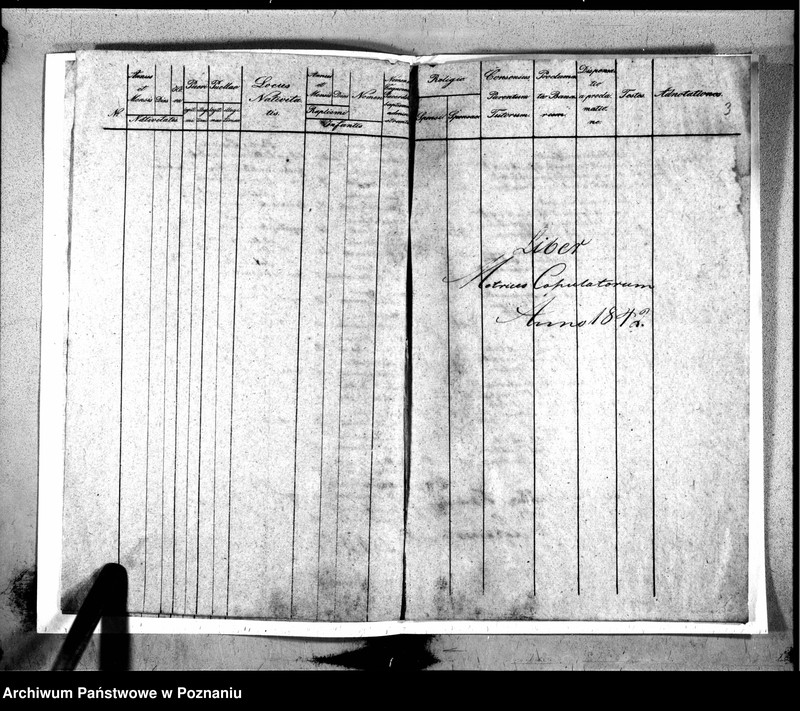 Nr.
Annus
et
Mensis
Dies
Nativitatis
Pueri
Puellae
Locus
Nativita
tis.
Annus
et
Mensis
Dies
Baptismi
Nomen
Infantis
Religio
Sponsi
Sponsae
Consensus
Parentum
Tutorum
Proclama
tio Bann
rum
Dispensa
tio
a procla
matio
ne
Testes
Adnotationes.
3
Liber
Metrices Copulatorum
Anno 1842.
Archiwum Państwowe w Poznaniu